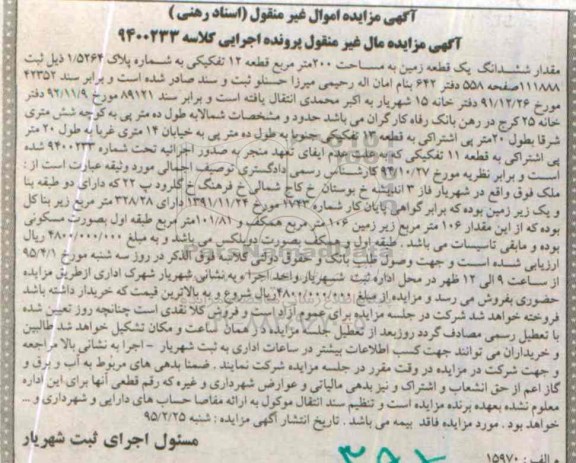 آگهی مزایده اموال غیر منقول (اسناد رهنی)
آگهی مزایده مال غیر منقول پرونده اجرایی کلاسه ۹۴۰۰۲۳۳
مقدار ششدانگ یک قطعه زمین به مساحت ۲۰۰متر مربع قطعه ۱۲ تفکیکی به شماره پلاک ۱/۵۲۶۴ ذیل ثبت
۱۱۱۸۸۸صفحه ۵۵۸ دفتر ۶۴۲ بنام امان اله رحیمی میرزا حسنلو ثبت و سند صادر شده است و برابر سند ۴۲۳۵۲
مورخ ۹۱/۱۲/۲۶ دفتر خانه ۱۵ شهریار به اکبر محمدی انتقال یافته است و برابر سند ۸۹۱۲۱ مورخ ۹۲/۱۱/۹ دفتر
خانه ۲۵ کرج در رهن بانک رفاه کارگران می باشد حدود و مشخصات شمالابه طول ده متر پی به کوچه شش متری
شرقا بطول ۲۰متر پی اشتراکی به قطعه ۱۳ تفکیکی جنوبا به طول ده متر پی به خیابان ۱۴ متری غربا به طول ۲۰ متر
پی اشتراکی به قطعه ۱۱ تفکیکی که به علت عدم ایفای تعهد منجر به صدور اجرائیه تحت شماره ۹۴۰۰۲۳۳ شده
است و برابر نظریه مورخ ۹۴/۱۰/۲۷ کارشناس رسمی دادگستری توصیف اجمالی مورد وثیقه عبارت است از :
ملک فوق واقع در شهریار فاز ۳ اندیشه خ بوستان خ کاج شمالی خ فرهنگ خ گلرود پ ۲۲ که دارای دو طبقه بنا
و یک زیر زمین بوده که برابر گواهی پایان کار شماره ۱۷۴۳ مورخ ۱۳۹۱/۱۱/۲۴ دارای ۳۲۸/۲۸ متر مربع زیر بنا کل
بوده که از این مقدار ۱۰۶ متر مربع زیر زمین ۱۰۶ متر مربع همکف و ۱۰۱/۸۱متر مربع طبقه اول بصورت مسکونی
بوده و مابقی تاسیسات می باشد . طبقه اول و همکف بصورت دوبلکس می باشند و به مبلغ ۴۸۰۰۰۰۰۰۰۰ ریال
ارزیابی شده است و جهت وصول طلب بانک و حقوق دولتی کلاسه فوق الذکر در روز سه شنبه مورخ ۹۵/۴/۱
از ساعت ۹ الی ۱۲ ظهر در محل اداره ثبت شهریار واحد اجرا به نشانی شهریار شهرک اداری ازطریق مزایده
حضوری بفروش می رسد و مزایده از مبلغ ریال شروع و به بالاترین قیمت که خریدار داشته باشد
فروخته خواهد شد شرکت در جلسه مزایده برای عموم آزاد است و فروش کلا نقدی است چنانچه روز تعیین شده
با تعطیل رسمی مصادف گردد روزبعد از تعطیل جلسه مزایده در همان ساعت و مکان تشکیل خواهد شد طالبین
و خریداران می توانند جهت کسب اطلاعات بیشتر در ساعات اداری به ثبت شهریار – اجرا به نشانی بالا مراجعه
و جهت شرکت در مزایده در وقت مقرر در جلسه مزایده شرکت نمایند . ضمنا بدهی های مربوط به آب و برق و
گاز اعم از حق انشعاب و اشتراک و نیز بدهی مالیاتی و عوارض شهرداری و غیره که رقم قطعی آنها برای این اداره
معلوم نشده بعهده برنده مزایده است و تنظیم سند انتقال موکول به ارائه مفاصا حساب های دارایی و شهرداری و ...
خواهد بود . مورد مزایده فاقد بیمه می باشد . تاریخ انتشار آگهی مزایده : شنبه ۹۵/۲/۲۵
مسئول اجرای ثبت شهریار
م الف : ۱۵۹۷۰